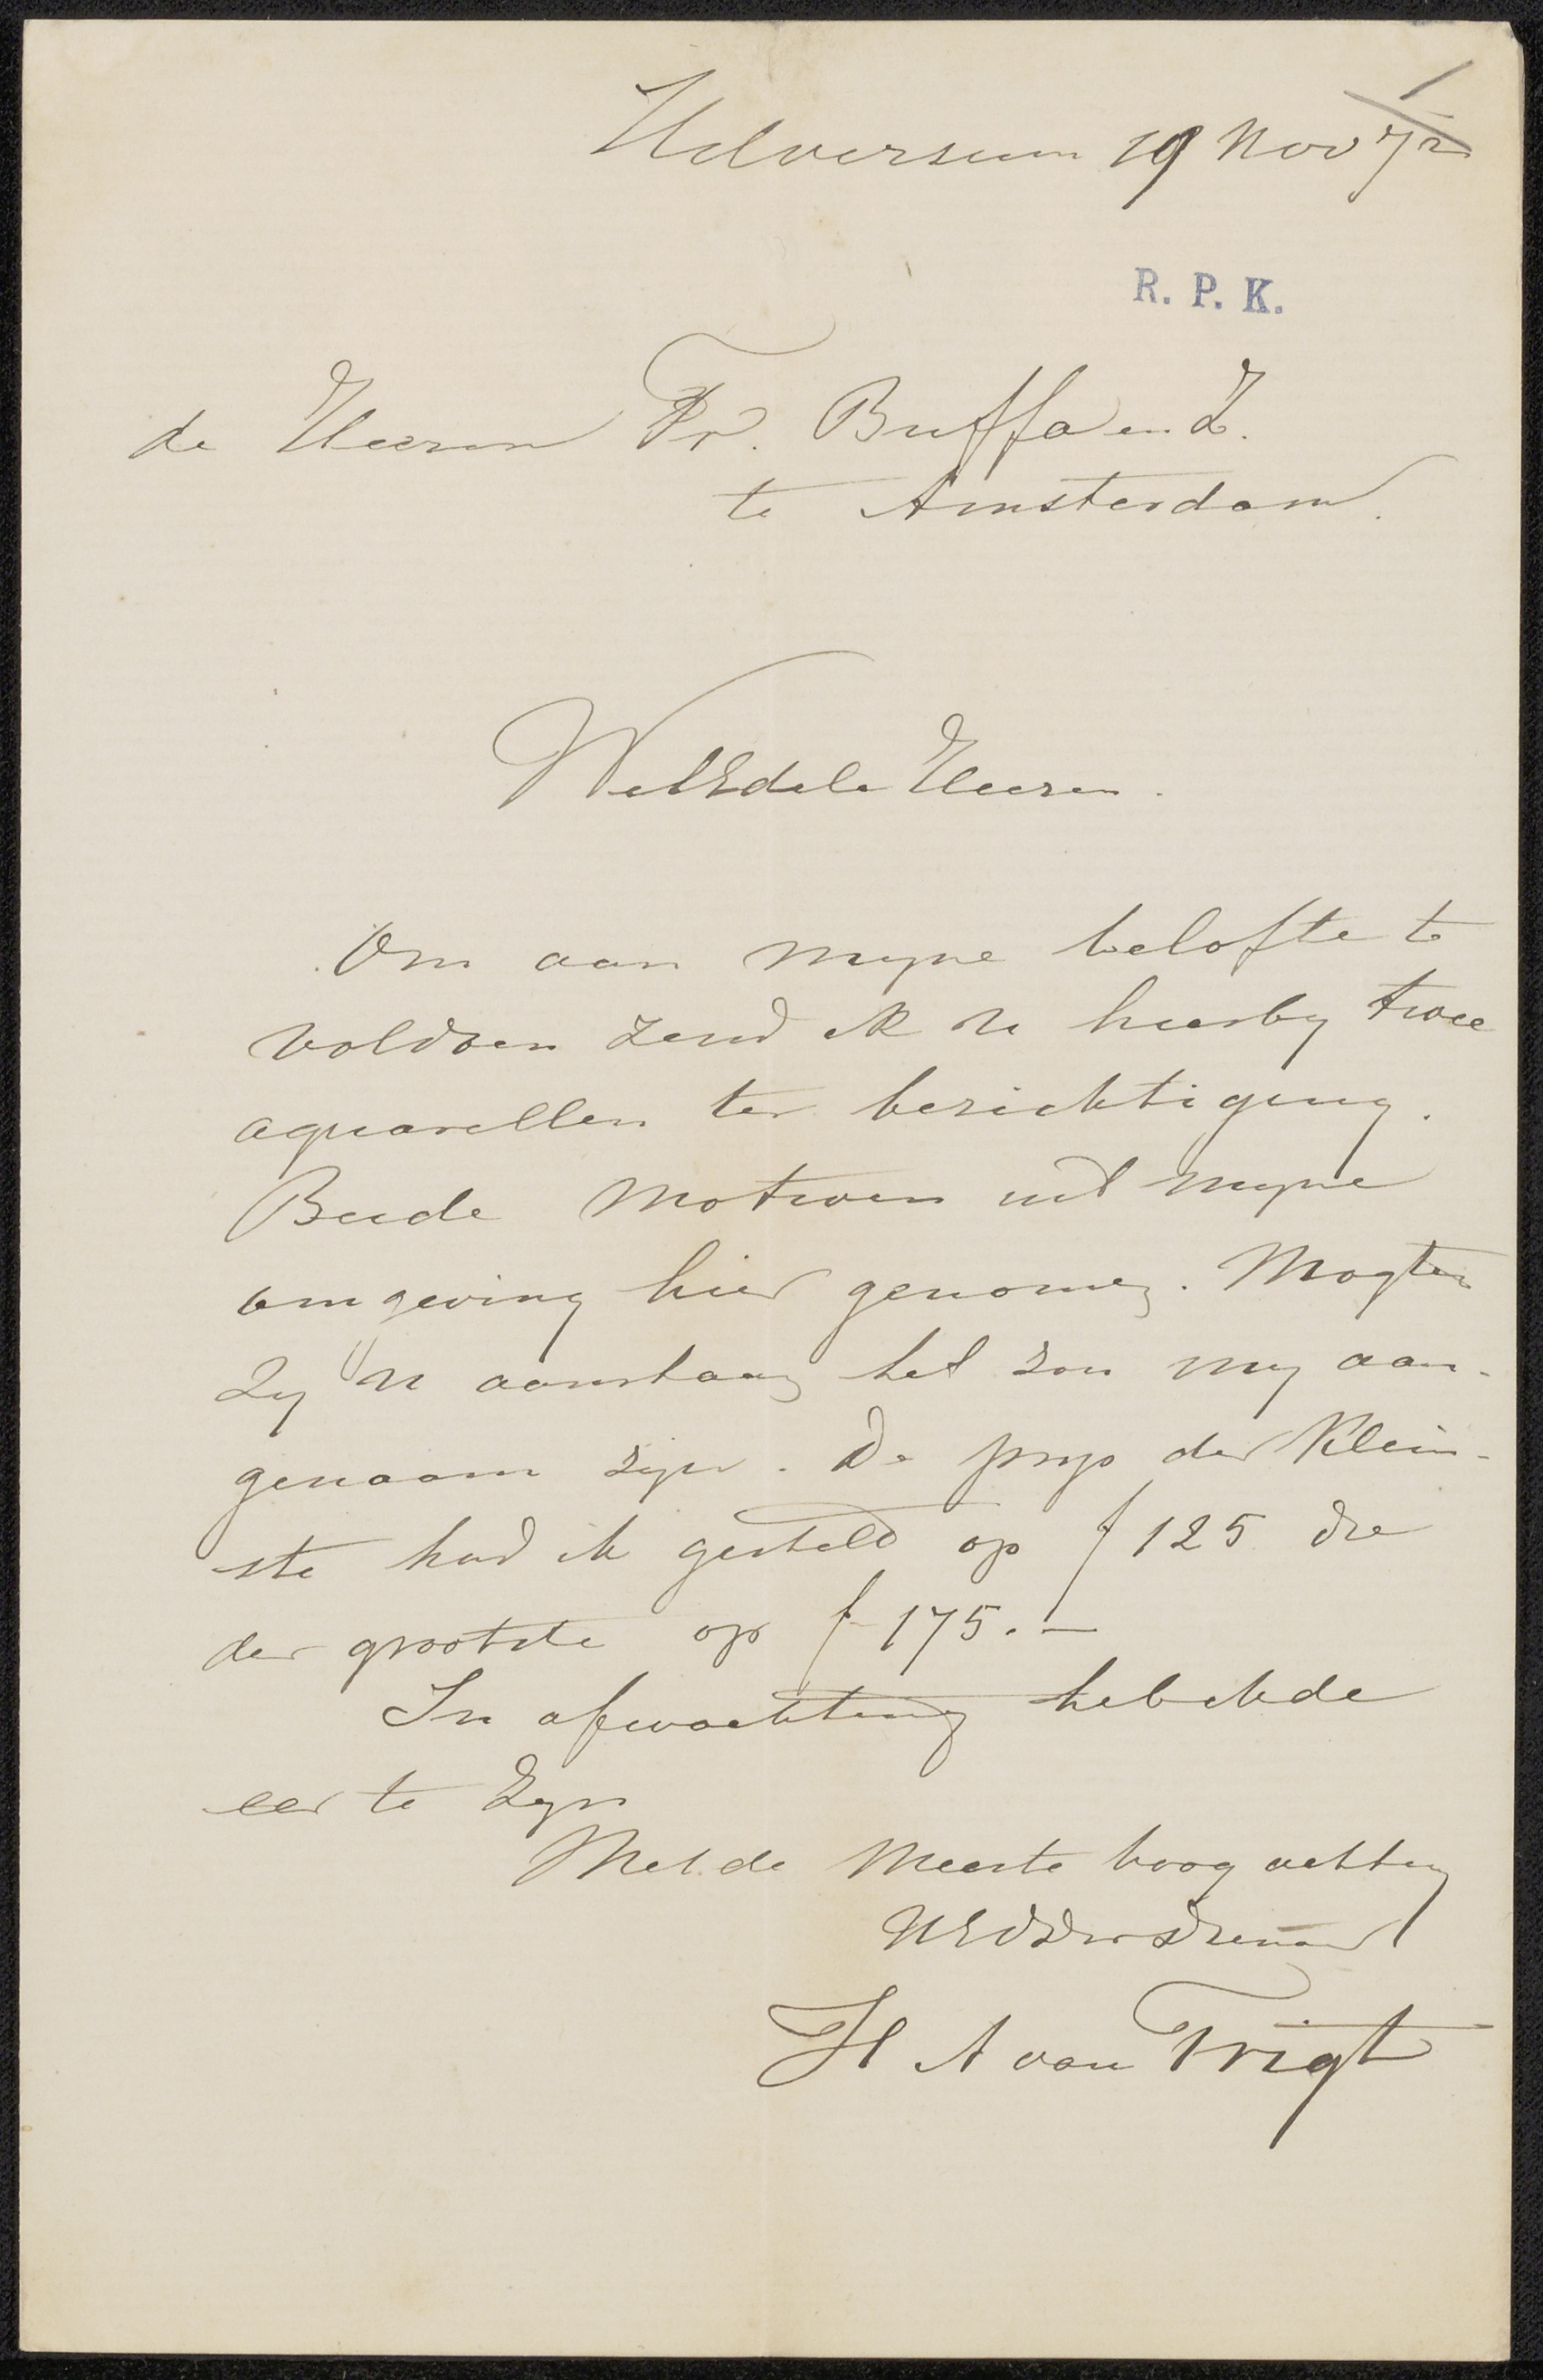 Hilversum 19 Nov 72
R. P. K.
de Heeren Fr. Buffa en Z.
te Amsterdam.
WelEdele Heeren.
Om aan myne belofte te
voldoen zend ik u hierby twee
aquarellen ter bezichtiging.
Beide motiven uit myne
omgeving hier genomen. Mogten
zy U aanstaan het zou my aan-
genaam zyn. De prys der klein-
ste had ik gesteld op f 125 die
der grootste op f 175.-
In afwachting heb ik de
eer te zyn
Met de meeste hoogachting
UEd Dw Dienaar
H A van Trigt